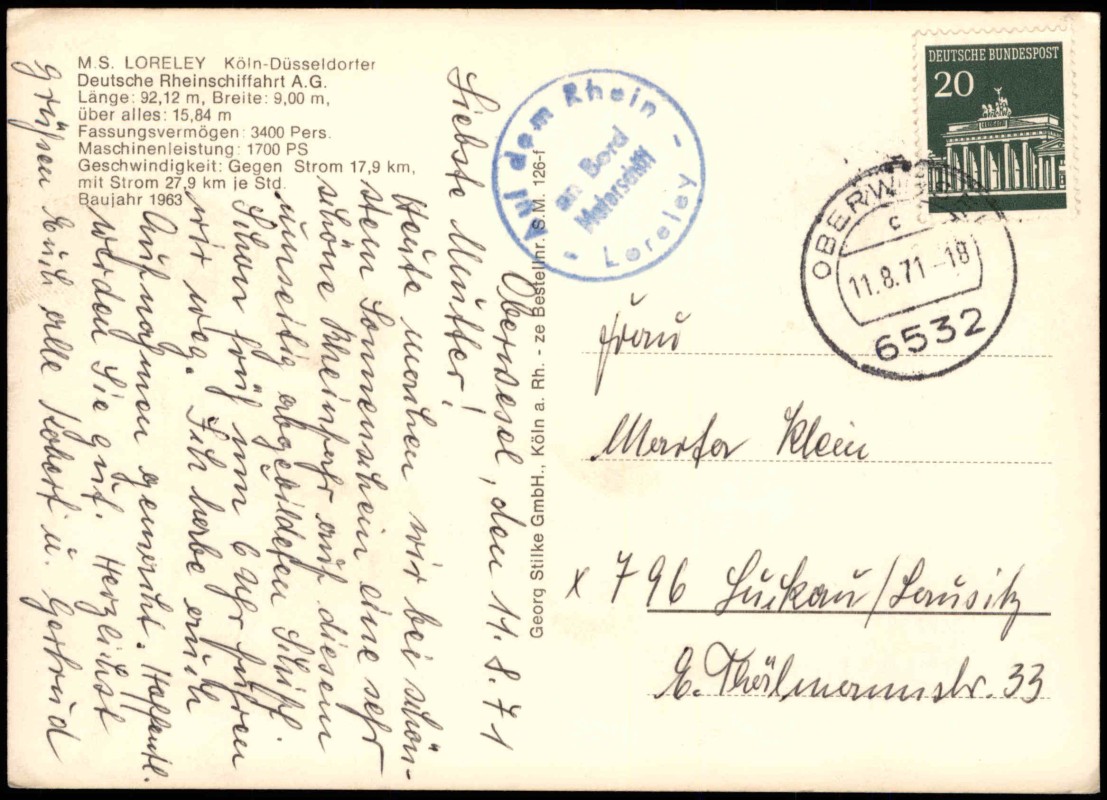 M.S. LORELEY Köln-Düsseldorfer
Deutsche Rheinschiffahrt A.G.
Länge: 92,12 m, Breite: 9,00 m,
über alles: 15,84 m
Fassungsvermögen: 3400 Pers.
Maschinenleistung: 1700 PS
Geschwindigkeit: Gegen Strom 17,9 km,
mit Strom 27,9 km je Std.
Baujahr 1963
Oberwesel, den 11.8.71
Liebste Mutter!
Heute machen wir bei schön-
stem Sonnenschein eine sehr
schöne Rheinfahrt auf diesem
umseitig abgebildeten Schiff.
Schon früh um 6 Uhr fuhren
wir weg. Ich habe auch
Aufnahmen gemacht. Hoffentl.
werden Sie gut. Herzlichst
grüßen Euch alle Robert u. Gertrud
Georg Stilke GmbH., Köln a. Rh. - ze Bestellnr. S.M. 126-f
Auf dem Rhein
an Bord
Motorschiff
- Loreley -
DEUTSCHE BUNDESPOST
20
OBERWESEL
c
11.8.71-18
6532
Frau
Marta Klein
x 796 Luckau/Lausitz
E. Thälmannstr. 33